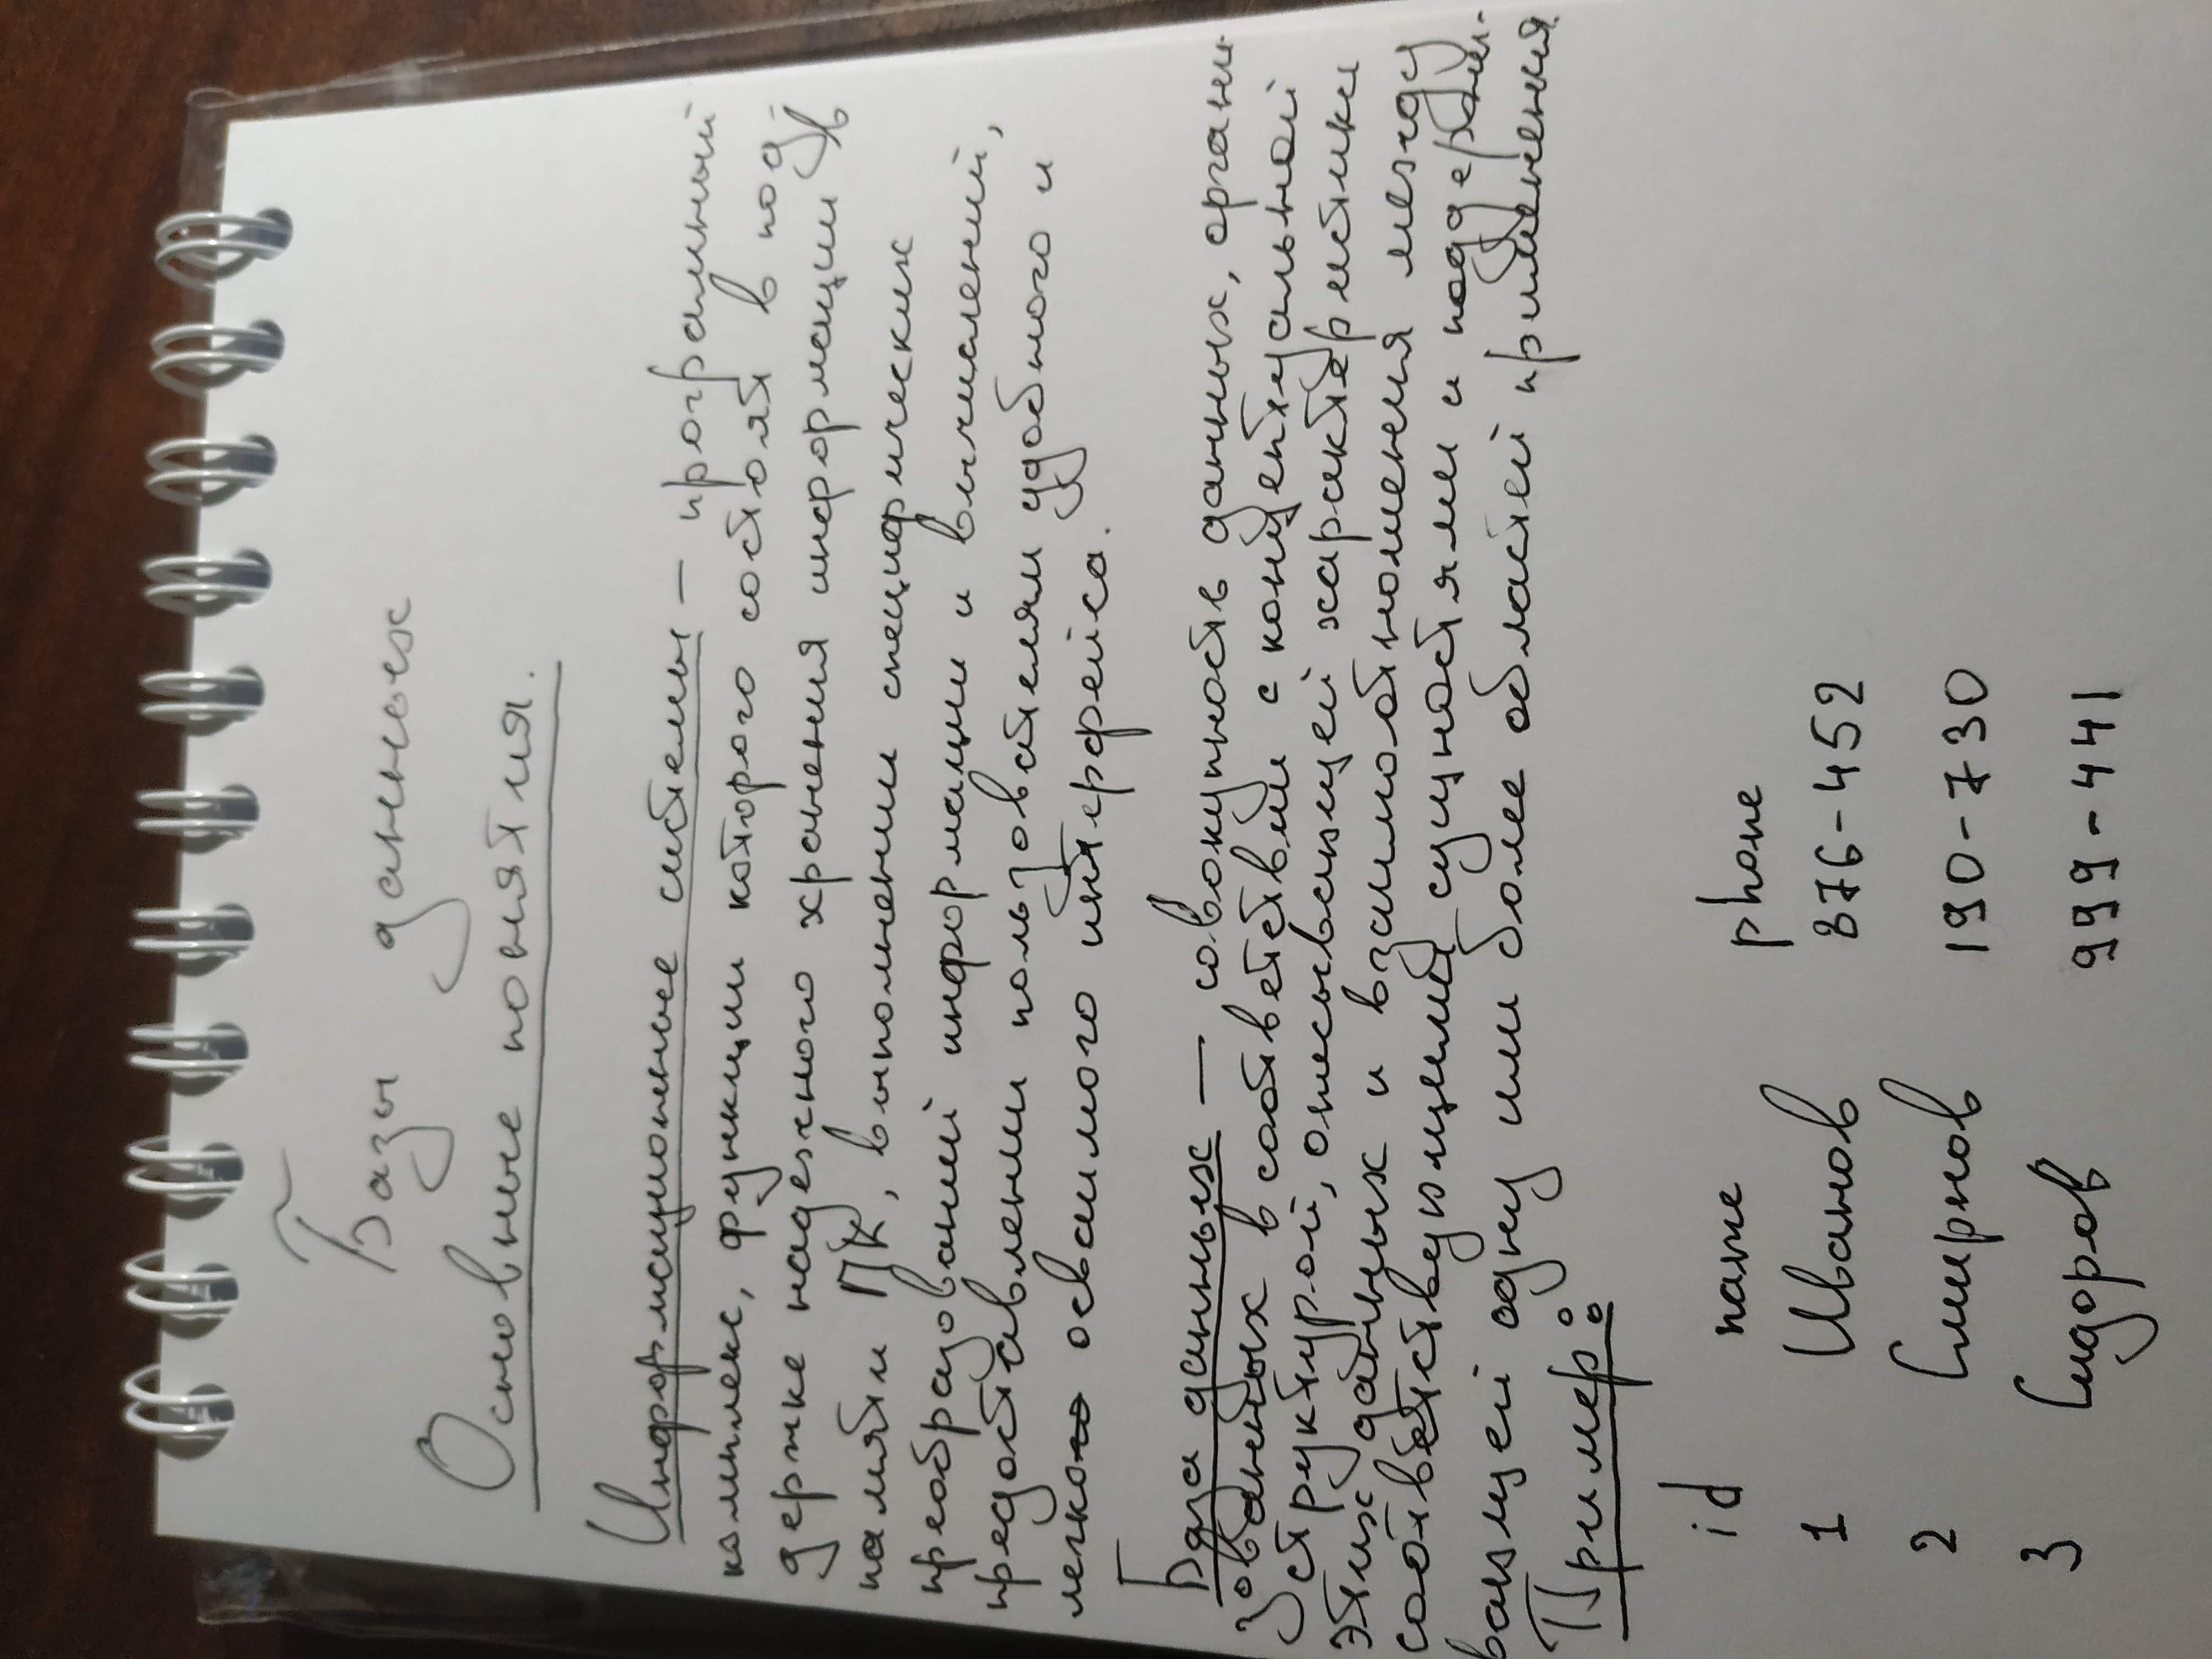 Базы данных
Основные понятия.
Информационные системы — програмный
комплекс, функции которого состоят в под-
держке надежного хранения информации в
памяти ПК, выполнении специфических
преобразований информации и вычислений,
предоставлении пользователям удобного и
легко осваимого интерфейса.
База данных — совокупность данных, органи-
зованных в соответствии с концептуальной
структурой, описывающей характеристики
этих данных и взаимоотношения между
соответствующими сущностями и поддержи-
вающей одну или более областей применения.
Пример:
id name phone
1 Иванов 876-452
2 Смирнов 190-730
3 Сидоров 999-441